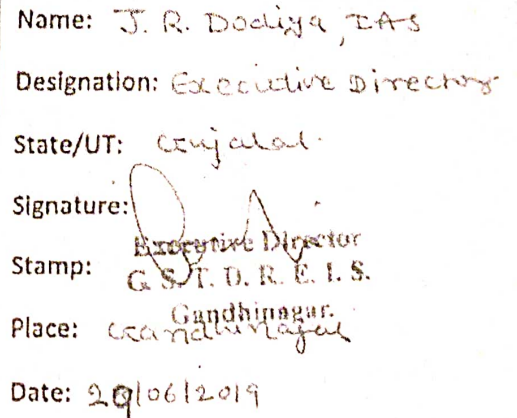 Name: J. R. Dodiya, IAS
Designation: Executive Director
State/UT: Gujarat.
Signature:
Executive Director
Stamp: G. S. T. D. R. E. I. S.
Gandhinagar.
Place: Gandhinagar
Date: 29/06/2019